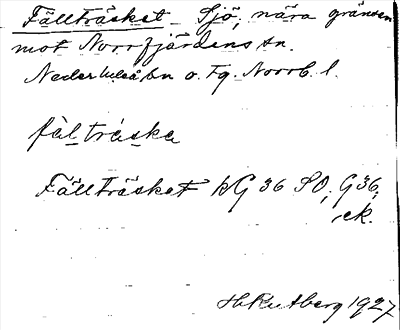 Fällträsket Sjö, nära gränsen
mot Norrfjärdens sn.
Nederluleå sn o. Fg. Norrb. l.
fàl tràska
Fällträsket kG 36 SO, G 36,
ek.
H Rutberg 1927